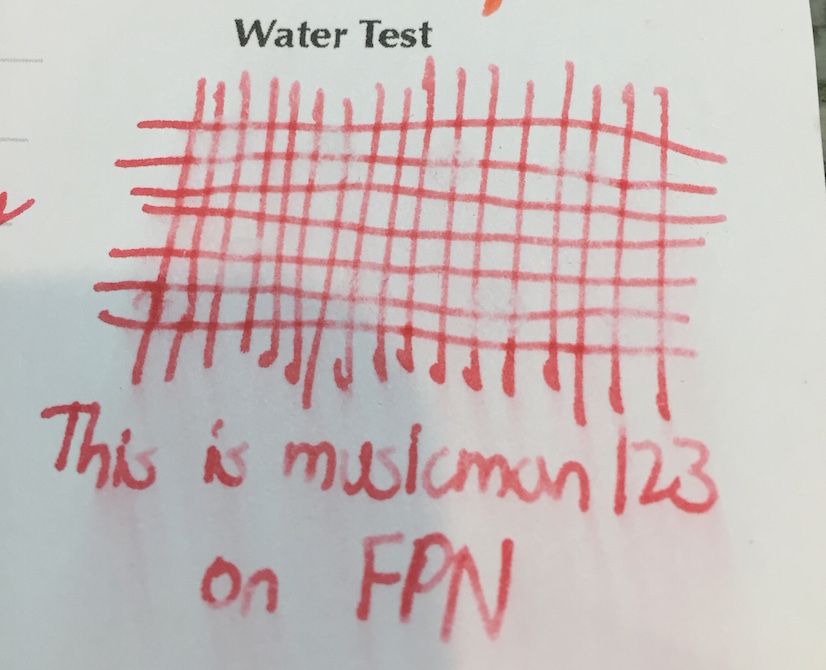 Water Test
This is musicman 123
on FPN